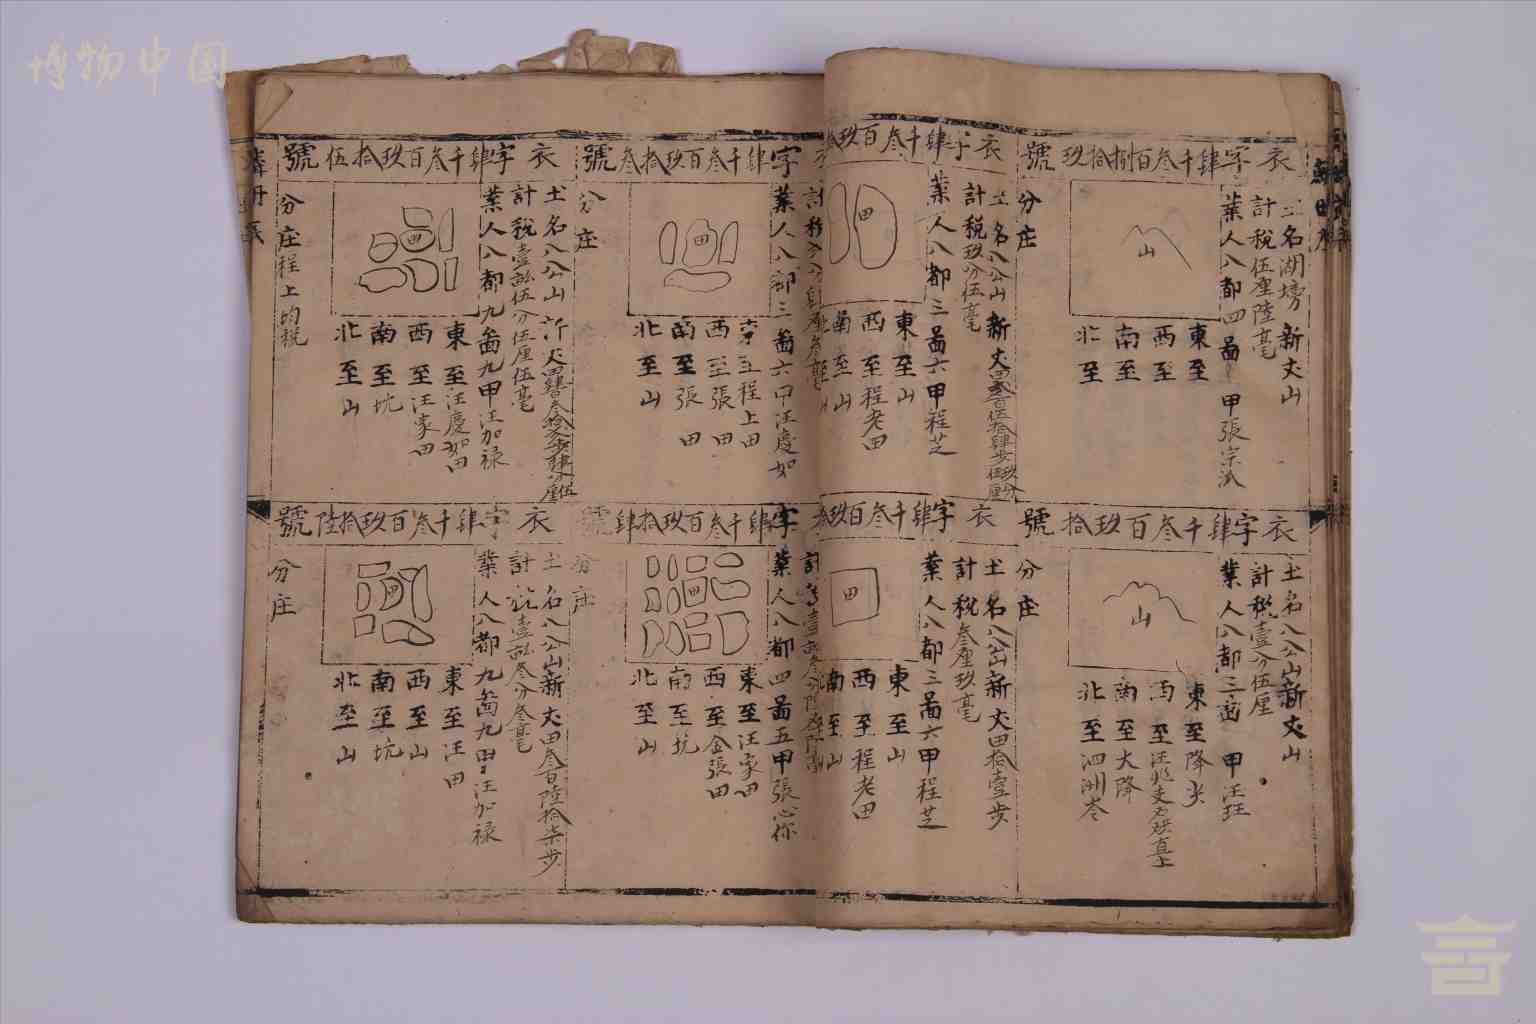 博物中国
衣字肆千叁百捌拾玖號
土名湖塝 新丈山
計稅伍厘陸毫
業人八都四啚 甲張宗
分庄
山
東至
西至
南至
北至
衣字肆千叁百玖拾號
土名八公山 新丈山
計稅壹分伍厘
業人八都三啚 甲汪玨
分庄
山
東至降尖
西至汪
南至大降
北至泗洲岺
衣字肆千叁百玖拾
土名八公山 新丈田叁百伍拾肆步玖分伍厘
計稅玖分伍毫
業人八都三啚六甲程芝
田
東至山
西至程老田
南至山
衣字肆千叁百玖拾
土名八公山新丈田拾壹步
計稅叁厘玖毫
業人八都三啚六甲程芝
田
東至山
西至程老田
南至山
字肆千叁百玖拾叁號
業人八都三啚六甲汪慶如
分庄
田
東至程上田
西至張田
南至張田
北至山
字肆千叁百玖拾肆號
業人八都四啚五甲張心你
分庄
田
東至汪家田
西至金張田
南至坑
北至山
衣字肆千叁百玖拾伍號
土名八公山 新丈田
計稅壹畝伍分伍厘伍毫
業人八都九啚九甲汪加祿
分庄程上均稅
田
東至汪慶如田
西至汪家田
南至坑
北至山
衣字肆千叁百玖拾陸號
土名八公山新丈田叁百陸拾柒步
計稅壹畝叁分叁毫
業人八都九啚九甲汪加祿
分庄
田
東至汪田
西至山
南至坑
北至山